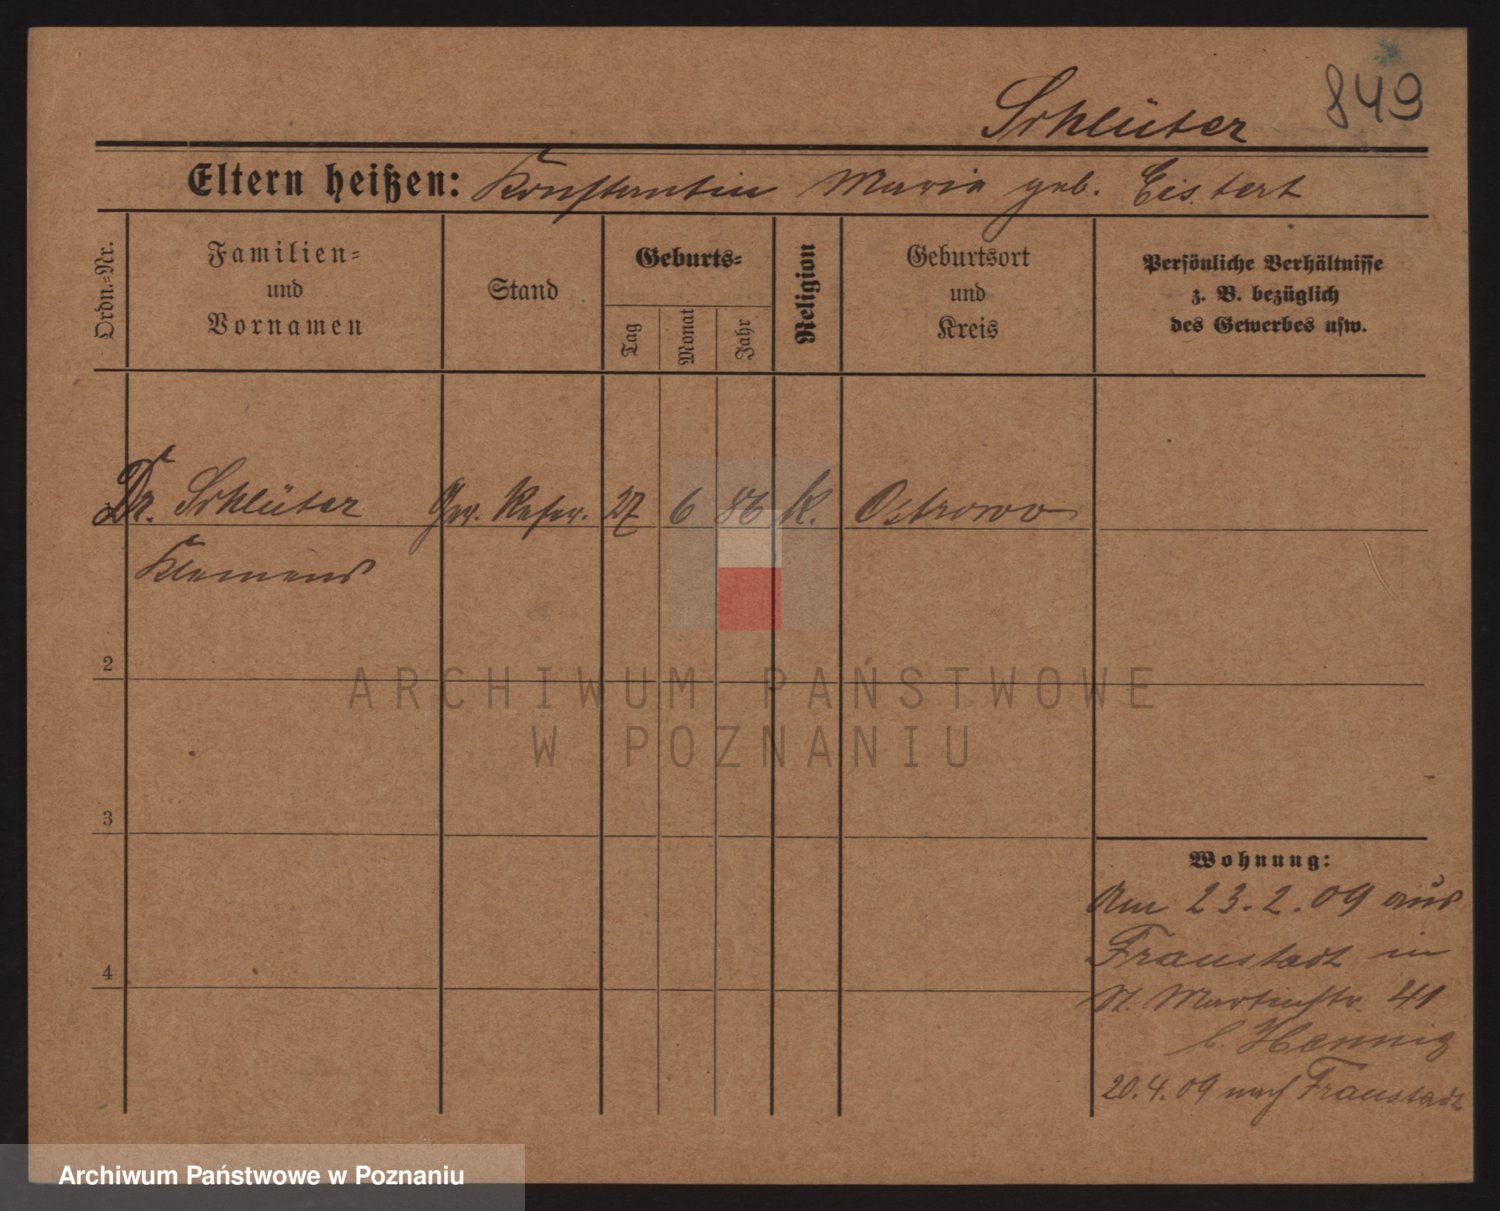 849
Schlüter
Eltern heißen: Konstantin Maria geb. Eistert
Ordn.=Nr.
Familien=
und
Vornamen
Stand
Geburts=
Tag
Monat
Jahr
Religion
Geburtsort
und
Kreis
Persönliche Verhältnisse
z. B. bezüglich
des Gewerbes usw.
Dr. Schlüter Ger. Refer. 27 6 86 K. Ostrowo
Klemens
2
3
4
Wohnung:
Am 23.2.09 aus
Fraustadt in
St. Martinstr. 41
b. Hennig
20.4.09 nach Fraustadt
ARCHIWUM PAŃSTWOWE
W POZNANIU
Archiwum Państwowe w Poznaniu